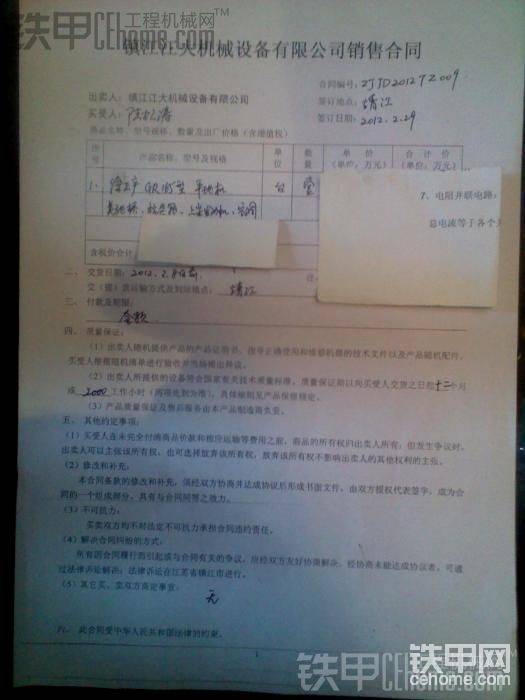 铁甲 工程机械网
CEhome.com
镇江江大机械设备有限公司销售合同
合同编号: ZJJD2012TZ009
出卖人: 镇江江大机械设备有限公司
签订地点: 靖江
买受人:
签订日期: 2012.2.29
一、商品名称、型号规格、数量及出厂价格(含增值税)
序号 产品名称、型号及规格 单位 数量 单价(单位:万元) 合计价(单位:万元)
1. 平地机 台 壹
7、电阻并联电路:
总电流等于各个
含税价合计
二、交货日期: 2012.
交(提)货运输方式及到站地点: 靖江
三、付款及期限:
全款
四、质量保证:
(1)出卖人随机提供产品的产品证明书、指导正确使用和维修机器的技术文件以及产品随机配件。
买受人根据随机清单进行验收并当场提出异议。
(2)出卖人所提供的设备符合国家有关技术质量标准。质量保证期以向买受人交货之日起十二个月
或 2000 工作小时(两项先到为准),具体细则见产品保修规定。
(3)产品质量保证及售后服务由本产品制造商负责。
五、其他约定事项:
(1)买受人在未完全付清商品价款和相应运输等费用之前,商品的所有权归出卖人所有;但发生争议时,
出卖人可以主张该所有权,也可选择放弃该所有权,放弃该所有权不影响出卖人的其他权利的主张。
(2)修改和补充:
本合同条款的修改和补充,须经双方协商并达成协议后形成书面文件,由双方授权代表签字,成为合
同的一个组成部分,具有与合同同等之效力。
(3)不可抗力:
买卖双方均不对法定不可抗力承担合同违约责任。
(4)解决合同纠纷的方式:
所有因合同履行而引起或与合同有关的争议,应经双方友好协商解决,经协商未能达成协议者,可通
过法律诉讼解决;法律诉讼在江苏省镇江市进行。
(5)其它买、卖双方商定事宜:
无
六、此合同受中华人民共和国法律的约束。
1
铁甲 工程机械网
CEhome.com
铁甲网
cehome.com